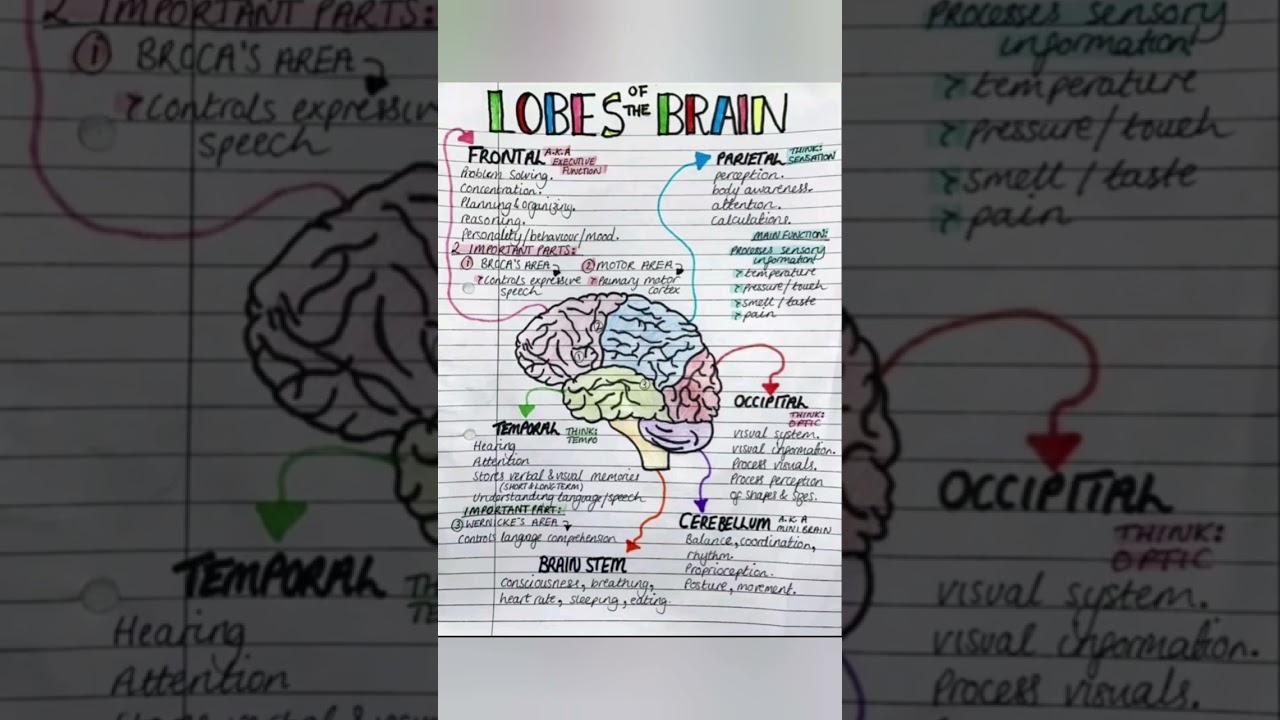 LOBES OF THE BRAIN
FRONTAL A.K.A EXECUTIVE FUNCTION
Problem solving.
Concentration.
Planning & organizing.
reasoning.
personality/behaviour/mood.
2 IMPORTANT PARTS:
① BROCA'S AREA
controls expressive speech
② MOTOR AREA
Primary motor cortex
PARIETAL THINK: SENSATION
perception.
body awareness.
attention.
calculations.
MAIN FUNCTION:
Processes sensory
information!
temperature
pressure/touch
smell/taste
pain
②
①
③
OCCIPITAL
THINK: OPTIC
visual system.
visual information.
Process visuals.
Process perception
of shapes & sizes.
TEMPORAL THINK: TEMPO
Hearing
Attention
Stores verbal & visual memories
(SHORT & LONG TERM)
Understanding language/speech
IMPORTANT PART:
③ WERNICKE'S AREA
Controls language comprehension
CEREBELLUM A.K.A MINI BRAIN
Balance, coordination,
rhythm.
Proprioception.
Posture, movement.
BRAIN STEM
consciousness, breathing,
heart rate, sleeping, eating.
2 IMPORTANT PARTS:
① BROCA'S AREA
controls expressiv
speech
TEMPORAL
Hearing
Attention
Processes sensory
information!
temperature
pressure/touch
smell/taste
pain
OCCIPITAL
THINK:
OPTIC
visual system.
visual information.
Process visuals.